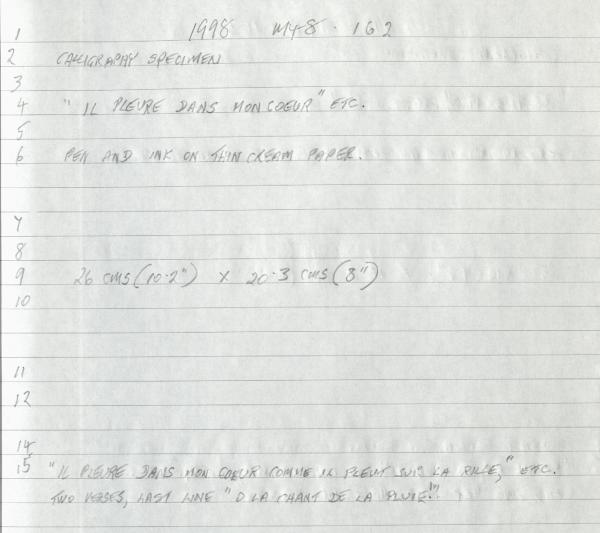 1 1998 M48.162
2 CALLIGRAPHY SPECIMEN
3
4 "IL PLEURE DANS MON COEUR" ETC.
5
6 PEN AND INK ON THIN CREAM PAPER.
7
8
9 26 cms (10.2") x 20.3 cms (8")
10
11
12
14
15 "IL PLEURE DANS MON COEUR COMME IL PLEUT SUR LA VILLE," ETC.
TWO VERSES, LAST LINE "O LA CHANT DE LA PLUIE!"